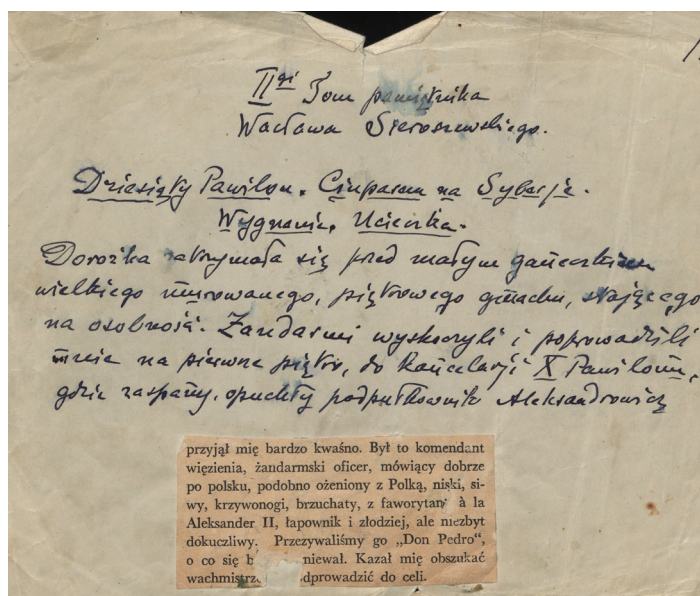 IIgi Tom pamiętnika
Wacława Sieroszewskiego.
Dziesiąty Pawilon. Ciupasem na Sybację.
Wygnanie. Ucieczka.
Dorożka zatrzymała się przed małym ganeczkiem
wielkiego murowanego, piętrowego gmachu, stojącego
na osobność. Żandarmi wyskoczyli i poprowadzili
mnie na pierwsze piętro, do kancelarji X Pawilonu,
gdzie zaspany, opuchły podpułkownik Aleksandrowicz
przyjął mię bardzo kwaśno. Był to komendant
więzienia, żandarmski oficer, mówiący dobrze
po polsku, podobno ożeniony z Polką, niski, si-
wy, krzywonogi, brzuchaty, z faworytam à la
Aleksander II, łapownik i złodziej, ale niezbyt
dokuczliwy. Przezywaliśmy go „Don Pedro”,
o co się niewał. Kazał mię obszukać
wachmistrz dprowadzić do celi.